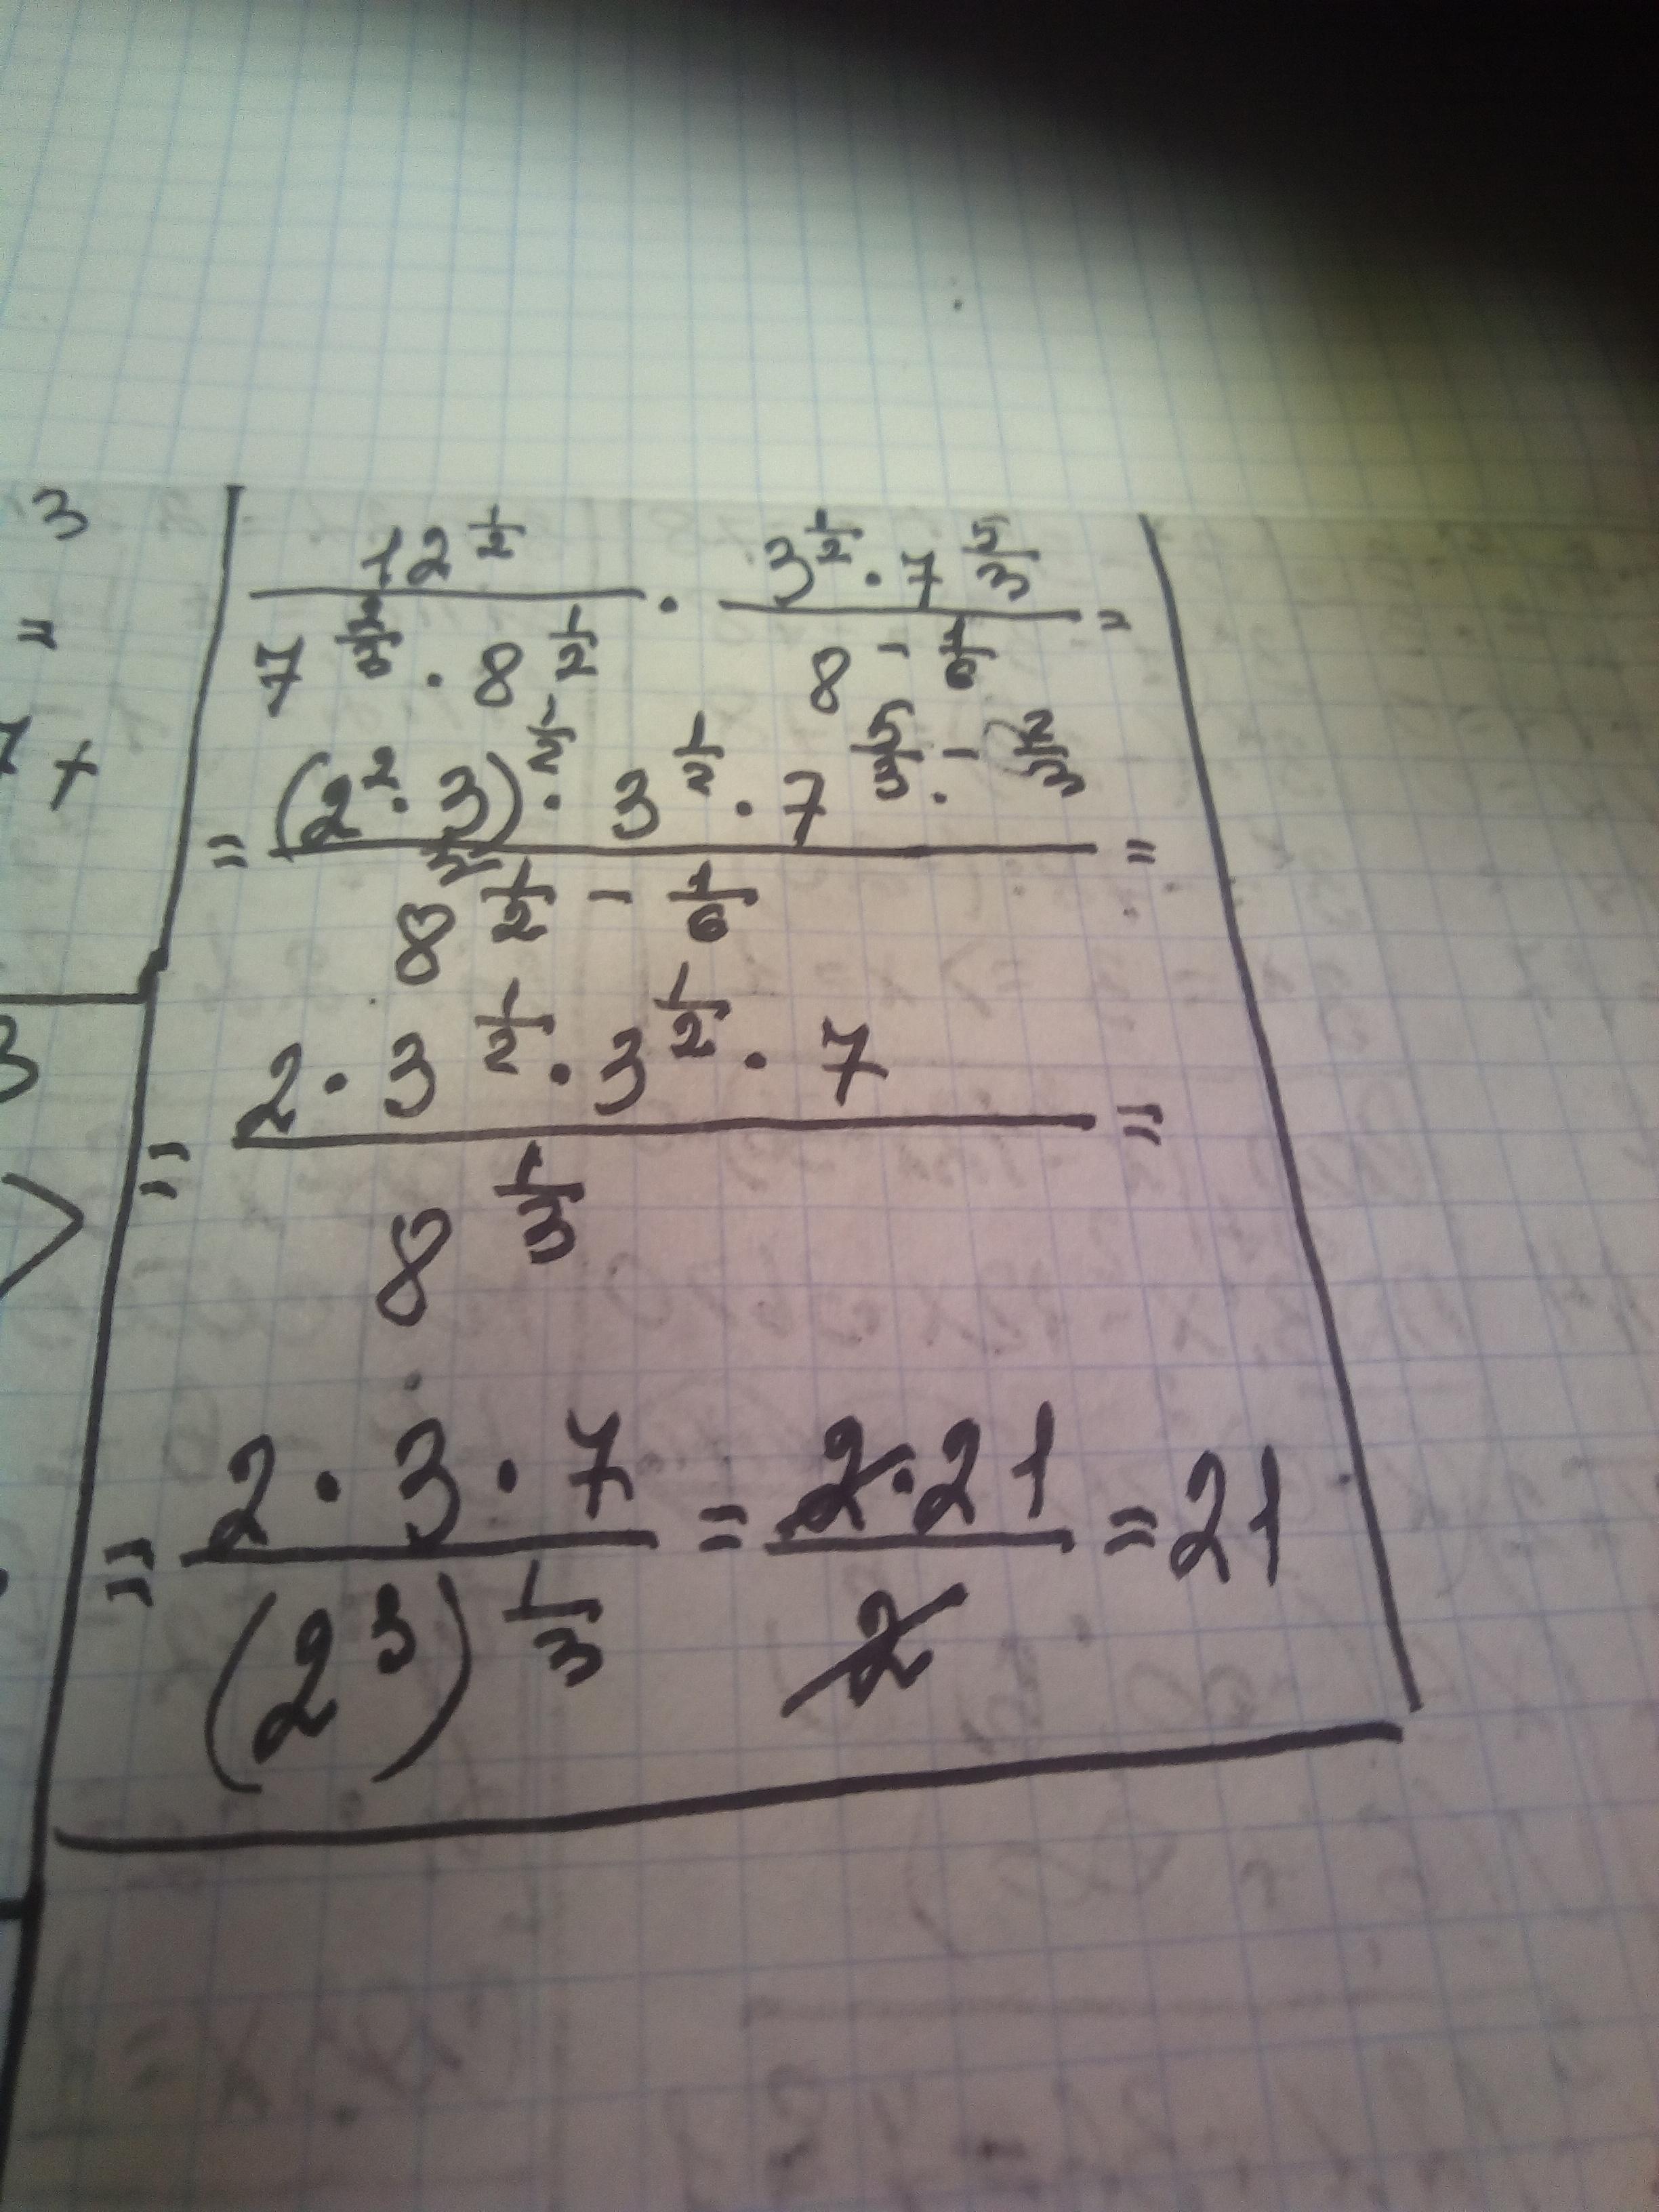 3
=
7 +
3
12^{1/2} / (7^{2/3} · 8^{1/2}) · (3^{1/2} · 7^{5/3}) / 8^{-1/6} =
= ((2^2 · 3)^{1/2} · 3^{1/2} · 7^{5/3 - 2/3}) / 8^{1/2 - 1/6} =
= (2 · 3^{1/2} · 3^{1/2} · 7) / 8^{1/3} =
= (2 · 3 · 7) / (2^3)^{1/3} = (2 · 21) / 2 = 21